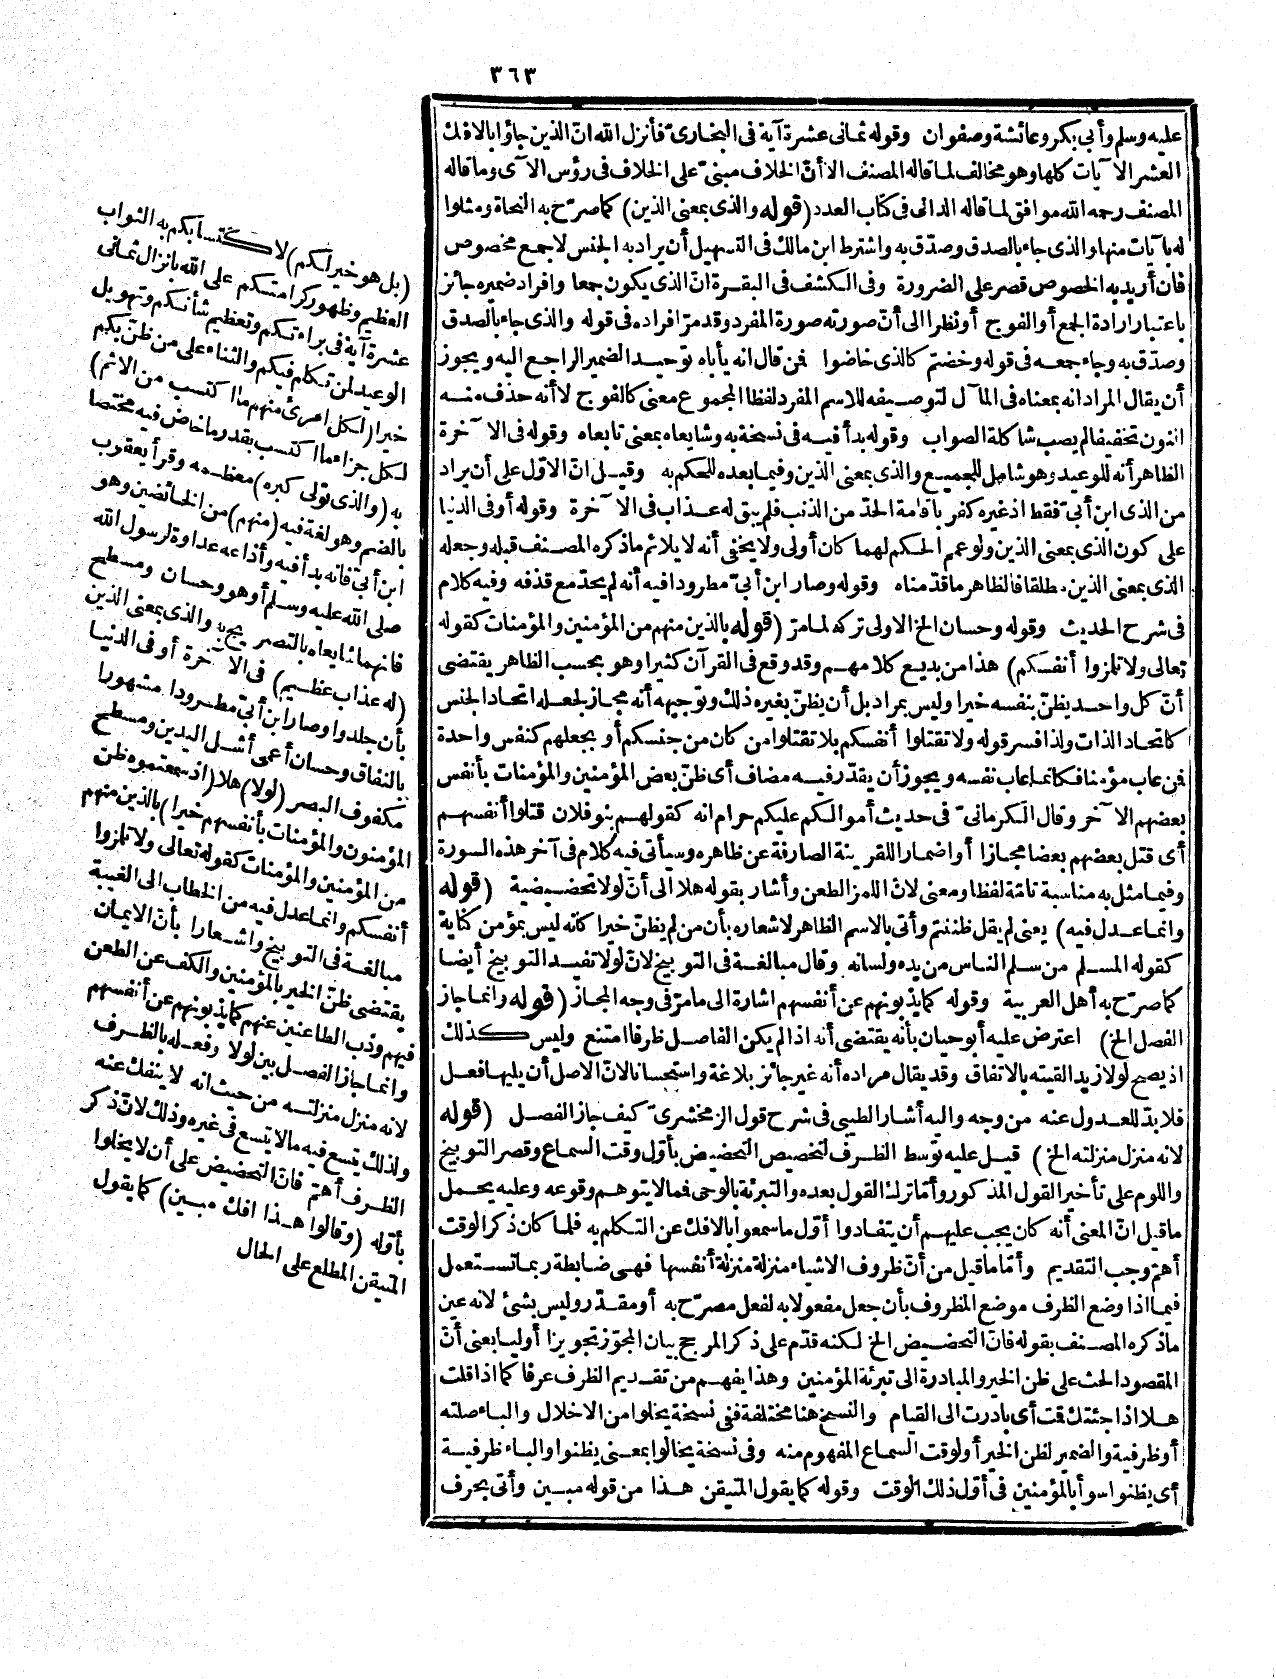 ٣٦٣
عليه وسلم وأبي بكر وعائشة وصفوان وقوله ثماني عشرة آية في البخاريّ فأنزل الله انّ الذين جاؤا بالافك
العشر الآيات كلها وهو مخالف لما قاله المصنف الا أنّ الخلاف مبنيّ على الخلاف في رؤس الآي وما قاله
المصنف رحمه الله موافق لما قاله الداني في كتاب العدد (قوله والذي بمعنى الذين) كما صرّح به النحاة ومثلوا
له بآيات منها والذي جاء بالصدق وصدّق به واشترط ابن مالك في التسهيل أن يراد به الجنس لا جمع مخصوص
فان أريد به الخصوص قصر على الضرورة وفي الكشف في البقرة انّ الذي يكون جمعا وافراد ضميره جائز
باعتبار ارادة الجمع أو الفوج أو نظرا الى أنّ صورته صورة المفرد وقد مرّ افراده في قوله والذي جاء بالصدق
وصدّق به وجاء جمعه في قوله وخضتم كالذي خاضوا فمن قال انه يأباه توحيد الضمير الراجع اليه ويجوز
أن يقال المراد انه بمعناه في المآل لتوصيفه للاسم المفرد لفظا المجموع معنى كالفوج لا أنه حذف منه
النون تخفيفا لم يصب شاكلة الصواب وقوله بدأ فيه في نسخة به وشايعاه بمعنى تابعاه وقوله في الآخرة
الظاهر أنه للوعيد وهو شامل للجميع والذي بمعنى الذين وفيما بعده للحكم به وقيل انّ الاوّل على أن يراد
من الذي ابن أبيّ فقط اذ غيره كفر باقامة الحدّ من الذنب فلم يبق له عذاب في الآخرة وقوله أو في الدنيا
على كون الذي بمعنى الذين ولو عمم الحكم لهما كان أولى ولا يخفى أنه لا يلائم ما ذكره المصنف قبله وجعله
الذي بمعنى الذين مطلقا فالظاهر ما قدّمناه وقوله وصار ابن أبيّ مطرودا فيه أنه لم يحدّ مع قذفه وفيه كلام
في شرح الحديث وقوله وحسان الخ الاولى تركه لما مرّ (قوله بالذين منهم من المؤمنين والمؤمنات كقوله
تعالى ولا تلمزوا أنفسكم) هذا من بديع كلامهم وقد وقع في القرآن كثيرا وهو بحسب الظاهر يقتضى
أنّ كل واحد يظنّ بنفسه خيرا وليس بمراد بل أن يظنّ بغيره ذلك وتوجيهه أنه مجاز لجعله اتحاد الجنس
كاتحاد الذات ولذا فسر قوله ولا تقتلوا أنفسكم بلا تقتلوا من كان من جنسكم أو يجعلهم كنفس واحدة
فمن عاب مؤمنا فكانما عاب نفسه ويجوز أن يقدّر فيه مضاف أي ظنّ بعض المؤمنين والمؤمنات بأنفس
بعضهم الآخر وقال الكرمانيّ في حديث أموالكم عليكم حرام انه كقولهم بنو فلان قتلوا أنفسهم
أي قتل بعضهم بعضا مجازا أو اضمار اللقرينة الصارفة عن ظاهره وسيأتى فيه كلام في آخر هذه السورة
وفيما مثل به مناسبة تامّة لفظا ومعنى لانّ اللمز الطعن وأشار بقوله هلا الى أنّ لولا تحضيضية (قوله
وانما عدل فيه) يعنى لم يقل ظننتم وأتى بالاسم الظاهر لاشعاره بأن من لم يظنّ خيرا كانه ليس بمؤمن كناية
كقوله المسلم من سلم الناس من يده ولسانه وقال مبالغة في التوبيخ لانّ لولا تفيد التوبيخ أيضا
كما صرّح به أهل العربية وقوله كما يذبونهم عن أنفسهم اشارة الى ما مرّ في وجه المجاز (قوله وانما جاز
الفصل الخ) اعترض عليه أبو حيان بأنه يقتضى أنه اذا لم يكن الفاصل ظرفا امتنع وليس كذلك
اذ يصح لولا زيد القيته بالاتفاق وقد يقال مراده أنه غير جائز بلاغة واستحسانا لانّ الاصل أن يليها فعل
فلا بدّ للعدول عنه من وجه واليه أشار الطيبي في شرح قول الزمخشريّ كيف جاز الفصل (قوله
لانه منزل منزلته الخ) قيل عليه توسط الظرف لتخصيص التحضيض بأوّل وقت السماع وقصر التوبيخ
واللوم على تأخير القول المذكور وأمّا ترك القول بعده والتبرئة بالوحى فما لا يتوهم وقوعه وعليه يحمل
ما قيل انّ المعنى أنه كان يجب عليهم أن يتفادوا أوّل ما سمعوا بالافك عن التكلم به فلما كان ذكر الوقت
أهمّ وجب التقديم وأمّا ما قيل من أنّ ظروف الاشياء منزلة منزلة أنفسها فهى ضابطة ربما تستعمل
فيما اذا وضع الظرف موضع المظروف بأن جعل مفعولا به لفعل مصرّح به أو مقدّر وليس بشئ لانه عين
ما ذكره المصنف بقوله فانّ التحضيض الخ لكنه قدّم على ذكر المرجح بيان المجوّز تجويزا أوليا بعنى أنّ
المقصود الحث على ظن الخير والمبادرة الى تبرئة المؤمنين وهذا يفهم من تقديم الظرف عرفا كما اذا قلت
هلا اذا جئتك قمت أي بادرت الى القيام والنسخ هنا مختلفة ففى نسخة يخلوا من الاخلال والباء صلته
أو ظرفية والضمير لظن الخير أو لوقت السماع المفهوم منه وفي نسخة يخالوا بمعنى يظنوا والباء ظرفية
أي يظنوا سوأ بالمؤمنين في أوّل ذلك الوقت وقوله كما يقول المتيقن هذا من قوله مبين وأتى بحرف
(بل هو خير لكم) لاكتسابكم به الثواب
العظيم وظهور كرامتكم على الله بانزال ثماني
عشرة آية في براءتكم وتعظيم شأنكم وتهويل
الوعيد لمن تكلم فيكم والثناء على من ظنّ بكم
خيرا (لكل امرئ منهم ما اكتسب من الاثم)
لكل جزاء ما اكتسب بقدر ما خاض فيه مختصا
به (والذي تولى كبره) معظمه وقرأ يعقوب
بالضم وهو لغة فيه (منهم) من الخائضين وهو
ابن أبيّ فانه بدأ فيه وأذاعه عداوة لرسول الله
صلى الله عليه وسلم أو هو وحسان ومسطح
فانهما شايعاه بالتصريح به والذي بمعنى الذين
(له عذاب عظيم) في الآخرة أو في الدنيا
بأن جلدوا وصار ابن أبيّ مطرودا مشهورا
بالنفاق وحسان أعمى أشل اليدين ومسطح
مكفوف البصر (لولا) هلا (اذ سمعتموه ظن
المؤمنون والمؤمنات بأنفسهم خيرا) بالذين منهم
من المؤمنين والمؤمنات كقوله تعالى ولا تلمزوا
أنفسكم وانما عدل فيه من الخطاب الى الغيبة
مبالغة في التوبيخ واشعارا بأنّ الايمان
يقتضى ظنّ الخير بالمؤمنين والكف عن الطعن
فيهم وذب الطاعنين عنهم كما يذبونهم عن أنفسهم
وانما جاز الفصل بين لولا وفعله بالظرف
لانه منزل منزلته من حيث انه لا ينفك عنه
ولذلك يتسع فيه ما لا يتسع في غيره وذلك لانّ ذكر
الظرف أهمّ فانّ التحضيض على أن لا يخلوا
بأوّله (وقالوا هذا افك مبين) كما يقول
المتيقن المطلع على الحال